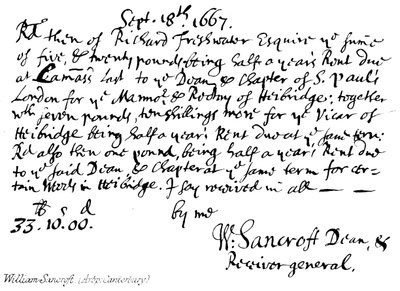 Sept. 18th. 1667.
Rd then of Richard Freshwater Esquire ye sume
of five, & twenty pounds, being half a year's Rent due
at Lamass last to ye Dean, & Chapter of S. Paul's
London for ye Mannor. & Rectory of Heibridge; together
wth seven pounds, ten shillings more for ye Vicar of
Heibridge being half a year's Rent due at ye same term:
Rd also then one pound, being half a year's Rent due
to ye said Dean, & Chapter at ye same term for cer-
tain Weeds in Heibridge. I say received in all — —
lb s d
33. 10. 00. by me
W. Sancroft Dean, &
Receiver general.
William Sancroft. (Archp. Canterbury)